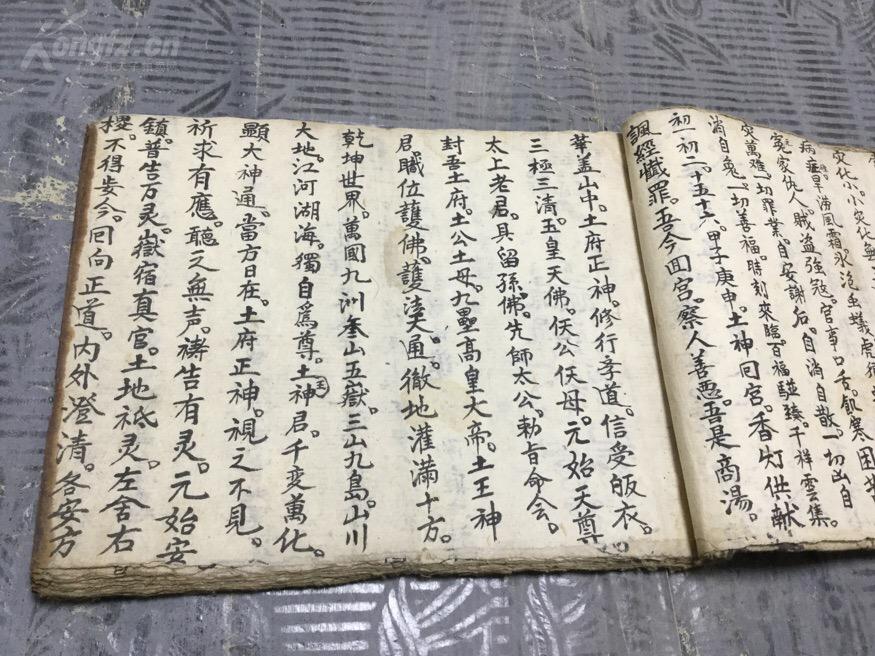 灾化小。小灾化無
病症旱涝風霜。氷泡虫蟻虎
冤家仇人。賊盗強冦。官事口舌。飢寒困
灾萬难。一切罪業。自安謝后。自消自散。一切凶自
消自免。一切善福。時刻来臨。百福駢臻。千祥雲集。
初一初二。十五十六。甲子庚申。土神囘宫。香灯供献
諷經懴罪。吾今囬宫。察人善悪。吾是商湯。
華盖山中。土府正神。修行孝道。信受皈衣。
三極三清。玉皇天佛。仸公仸母。元始天尊
太上老君。具留孫佛。先師太公。勅旨命令。
封吾土府。土公土母。九壘高皇大帝。土王神
君。職位護佛。護法大通。徹地灌滿十方。
乾坤世界。萬國九洲。奎山五嶽。三山九島。山川
大地。江河湖海。獨自爲尊。土王神君。千变萬化。
顯大神通。當方日在。土府正神。視之不見。
祈求有應。聽之無声。禱告有灵。元始安
鎮。普告万灵。嶽宿真官。土地祗灵。左舍右
㩳。不得妄今。囘向正道。内外澄清。各安方